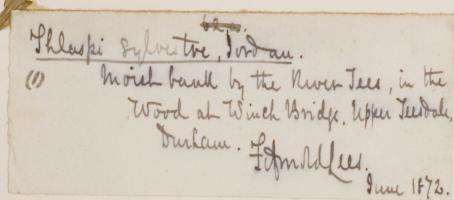 Thlaspi sylvestre, Jordan.
(1) Moist bank by the River Tees, in the
Wood at Winch Bridge, Upper Teesdale,
Durham. F. Arnold Lees.
June 1872.